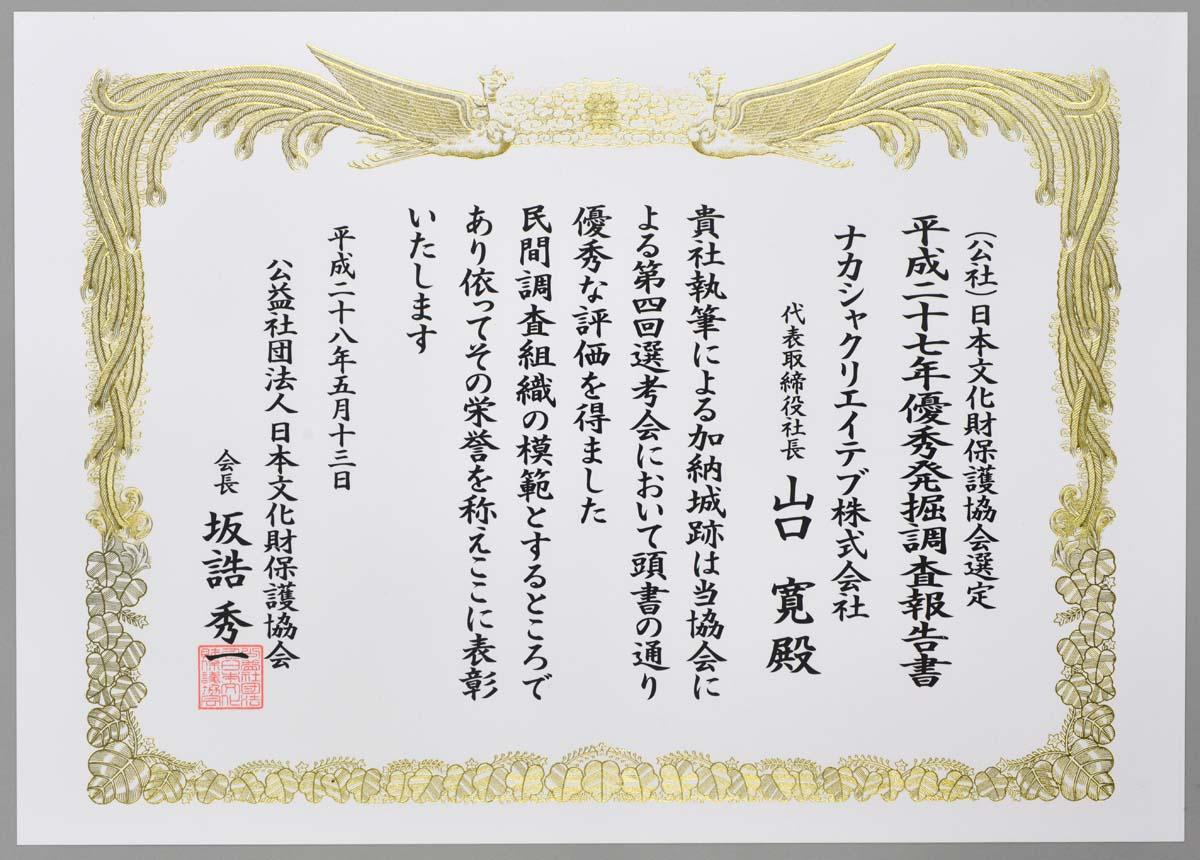 (公社)日本文化財保護協会選定
平成二十七年優秀発掘調査報告書
ナカシャクリエイテブ株式会社
代表取締役社長 山口 寛殿
貴社執筆による加納城跡は当協会に
よる第四回選考会において頭書の通り
優秀な評価を得ました
民間調査組織の模範とするところで
あり依ってその栄誉を称えここに表彰
いたします
平成二十八年五月十三日
公益社団法人日本文化財保護協会
会長 坂誥秀一
公益社団法
人日本文化
財保護協会